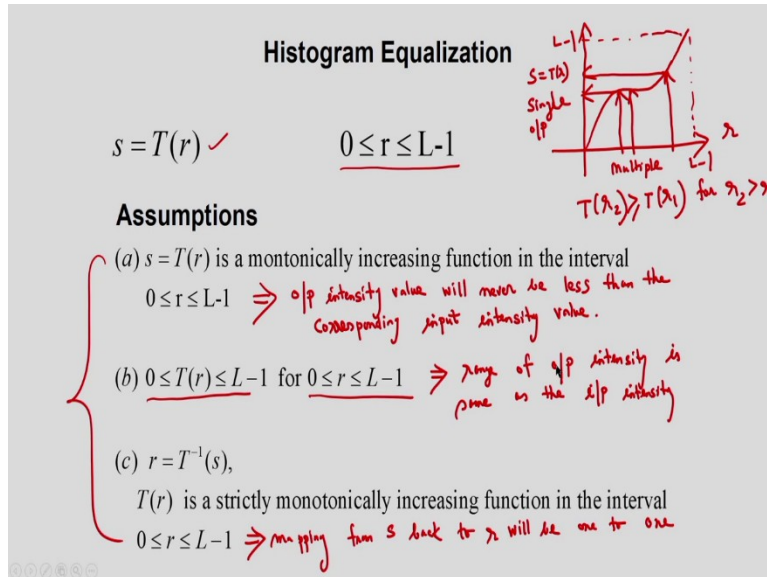 Histogram Equalization
L-1
S=T(r)
Single
o/p
r
multiple
L-1
T(r2)⩾T(r1) for r2>r
s = T(r) ✓
0 ≤ r ≤ L-1
Assumptions
(a) s = T(r) is a montonically increasing function in the interval
0 ≤ r ≤ L-1 ⇒ o/p intensity value will never be less than the
corresponding input intensity value.
(b) 0 ≤ T(r) ≤ L-1 for 0 ≤ r ≤ L-1 ⇒ range of o/p intensity is
same as the i/p intensity
(c) r = T⁻¹(s),
T(r) is a strictly monotonically increasing function in the interval
0 ≤ r ≤ L-1 ⇒ mapping from s back to r will be one to one